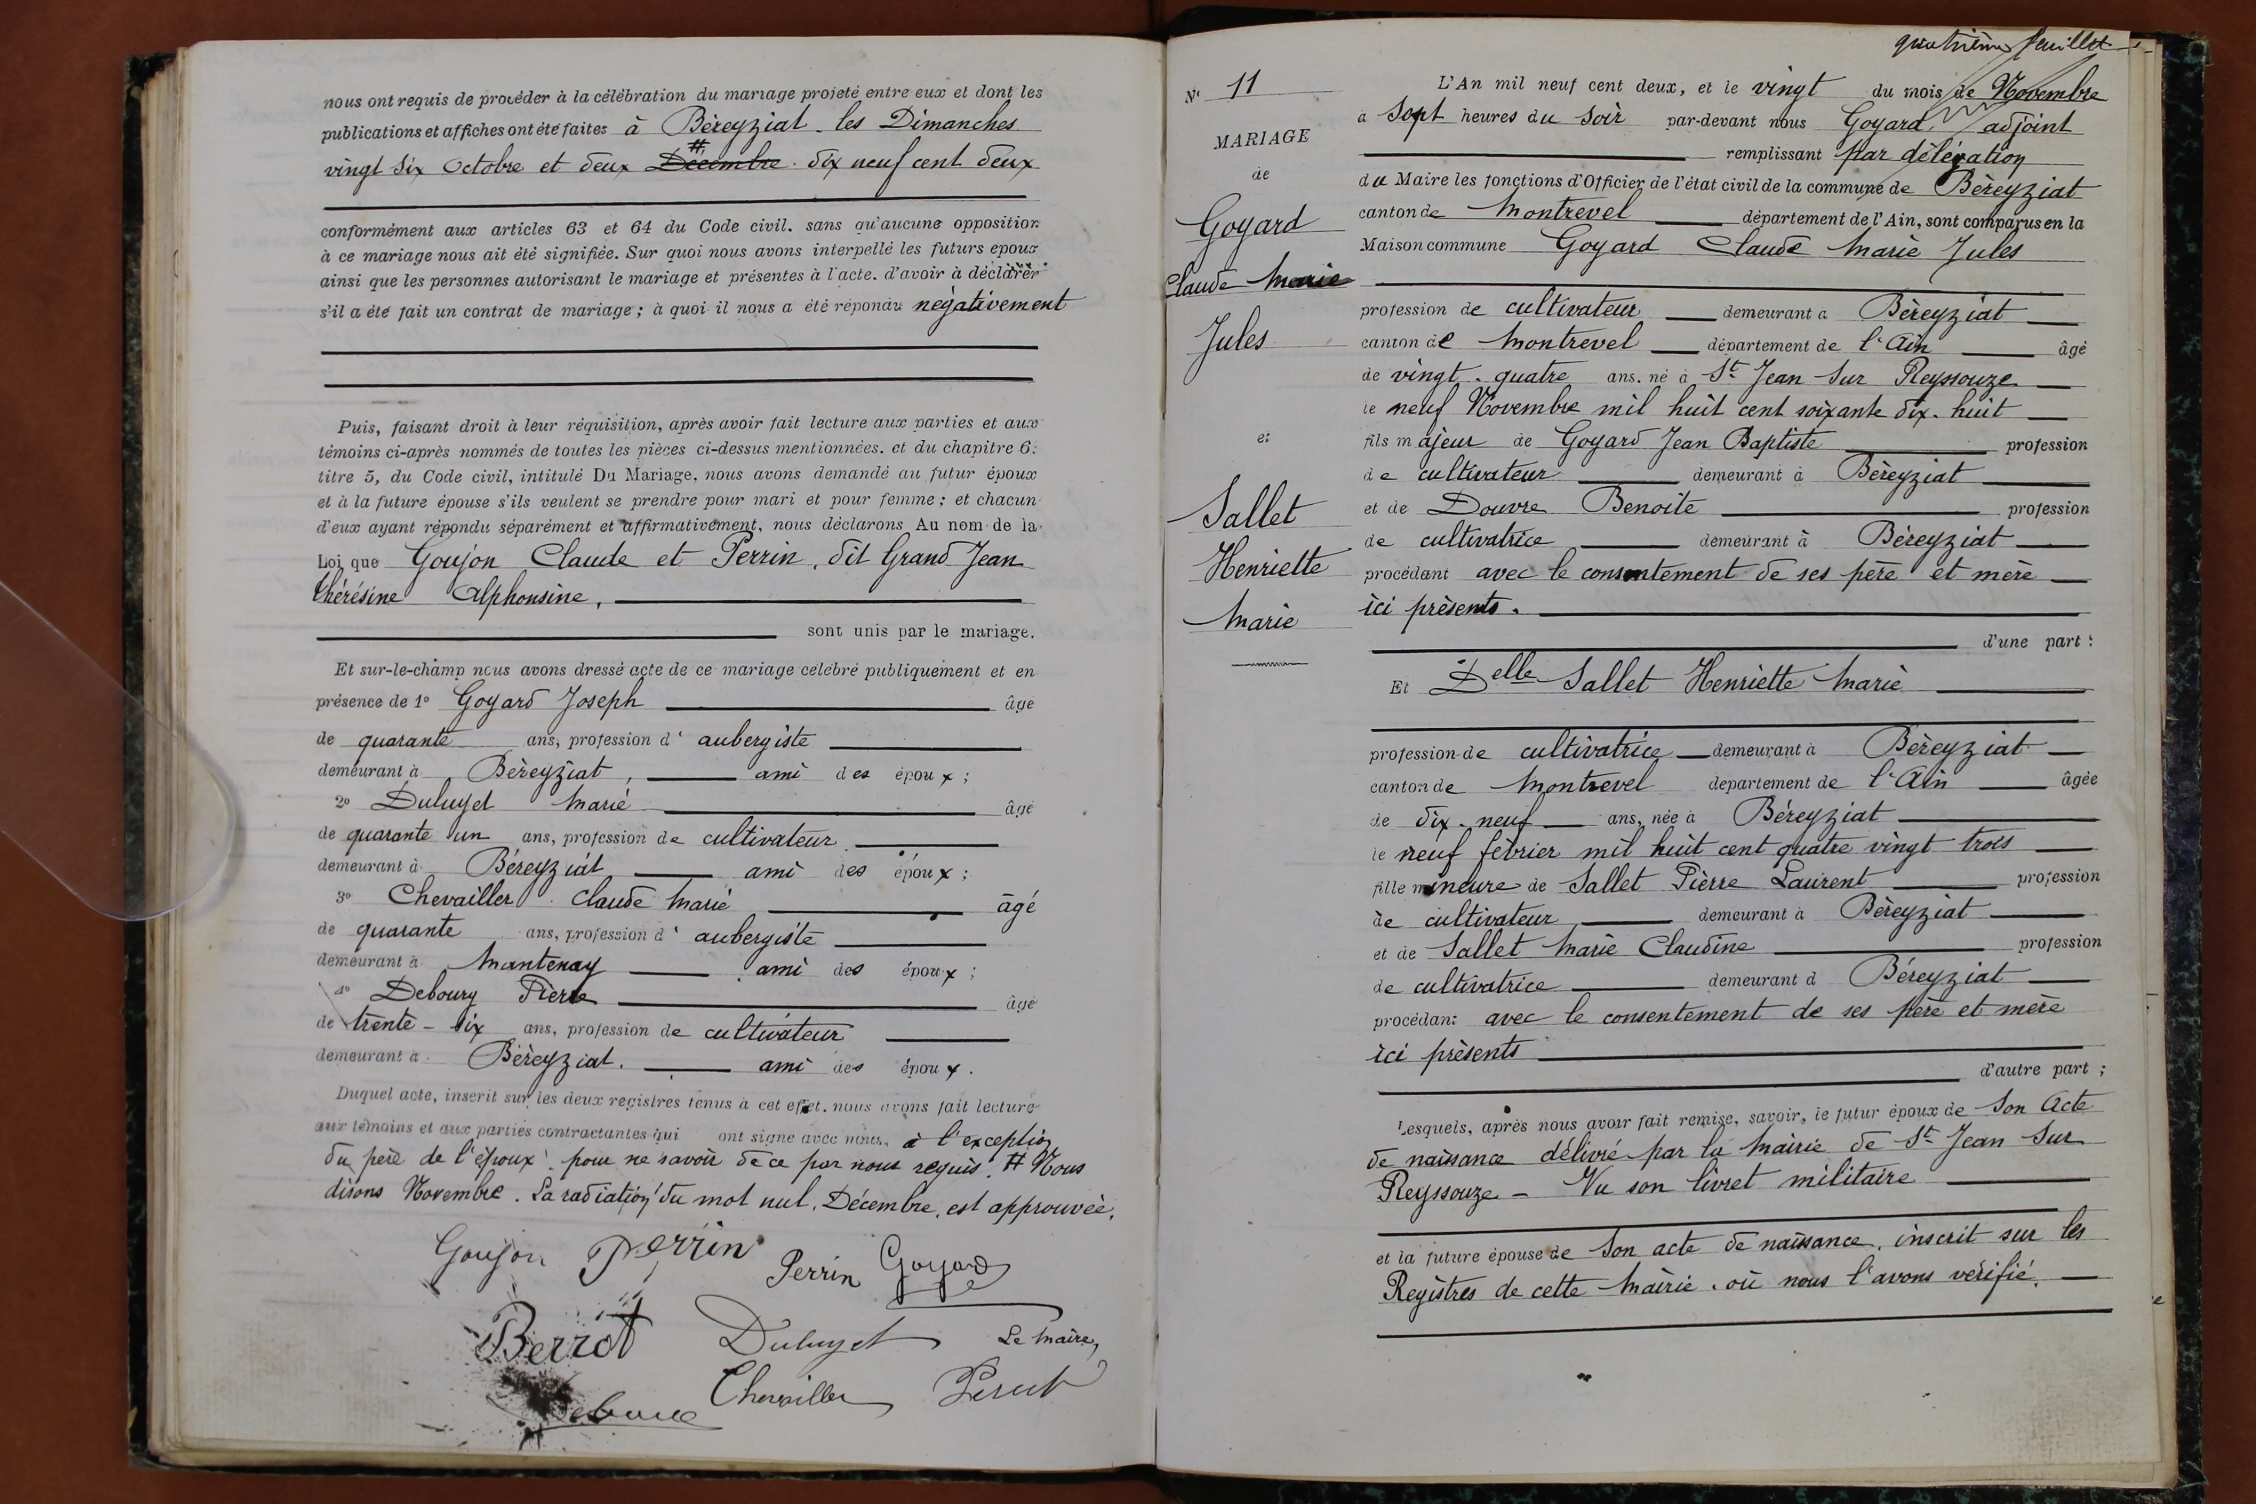 nous ont requis de procéder à la célébration du mariage projeté entre eux et dont les
publications et affiches ont été faites à Béreyziat les Dimanches
#
vingt six Octobre et deux Décembre dix neuf cent deux
conformément aux articles 63 et 64 du Code civil. sans qu'aucune opposition
à ce mariage nous ait été signifiée. Sur quoi nous avons interpellé les futurs epoux
ainsi que les personnes autorisant le mariage et présentes à l'acte. d'avoir à déclarer
s'il a été fait un contrat de mariage ; à quoi il nous a été répondu négativement
Puis, faisant droit à leur réquisition, après avoir fait lecture aux parties et aux
témoins ci-après nommés de toutes les pièces ci-dessus mentionnées. et du chapitre 6.
titre 5, du Code civil, intitulé Du Mariage, nous avons demandé au futur époux
et à la future épouse s'ils veulent se prendre pour mari et pour femme ; et chacun
d'eux ayant répondu séparément et affirmativement, nous déclarons Au nom de la
Loi que Goujon Claude et Perrin, dit Grand Jean
Thérésine Alphonsine,
sont unis par le mariage.
Et sur-le-champ nous avons dressé acte de ce mariage célébré publiquement et en
présence de 1º Goyard Joseph âge
de quarante ans, profession d' aubergiste
demeurant à Béreyziat, ami des époux ;
2º Duluyet Marie âgé
de quarante un ans, profession de cultivateur
demeurant à Béreyziat ami des époux ;
3º Chevailler Claude Marie âgé
de quarante ans, profession d' aubergiste
demeurant à Mantenay ami des époux ;
4º Debourg Pierre âgé
de trente-six ans, profession de cultivateur
demeurant à Béreyziat. ami des époux.
Duquel acte, inscrit sur les deux registres tenus à cet effet. nous avons fait lecture
aux témoins et aux parties contractantes qui ont signé avec nous, à l'exception
du père de l'époux pour ne savoir de ce par nous requis. # Nous
disons Novembre. La radiation du mot nul, Décembre, est approuvée.
Goujon Perrin Perrin Goyard
Berrot Duluyet Le Maire,
Chevailler Perret
quatrième feuillet
Nº 11
MARIAGE
de
Goyard
Claude Marie
Jules
et
Sallet
Henriette
Marie
L'An mil neuf cent deux, et le vingt du mois de Novembre
à sept heures du soir par-devant nous Goyard, adjoint
remplissant par délégation
du Maire les fonctions d'Officier de l'état civil de la commune de Béreyziat
canton de Montrevel département de l'Ain, sont comparus en la
Maison commune Goyard Claude Marie Jules
profession de cultivateur demeurant a Béreyziat
canton de Montrevel département de l'Ain âgé
de vingt-quatre ans. né à St Jean sur Reyssouze
le neuf Novembre mil huit cent soixante dix-huit
fils majeur de Goyard Jean Baptiste profession
de cultivateur demeurant à Béreyziat
et de Douvre Benoite profession
de cultivatrice demeurant à Béreyziat
procédant avec le consentement de ses père et mère
ici présents.
d'une part :
Et Delle Sallet Henriette Marie
profession de cultivatrice demeurant à Béreyziat
canton de Montrevel département de l'Ain âgée
de dix-neuf ans, née à Béreyziat
le neuf février mil huit cent quatre vingt trois
fille mineure de Sallet Pierre Laurent profession
de cultivateur demeurant à Béreyziat
et de Sallet Marie Claudine profession
de cultivatrice demeurant à Béreyziat
procédant avec le consentement de ses père et mère
ici présents
d'autre part ;
Lesquels, après nous avoir fait remise, savoir, le futur époux de son Acte
de naissance délivré par la Mairie de St Jean sur
Reyssouze - Vu son livret militaire
et la future épouse de son acte de naissance, inscrit sur les
Registres de cette Mairie, où nous l'avons vérifié.